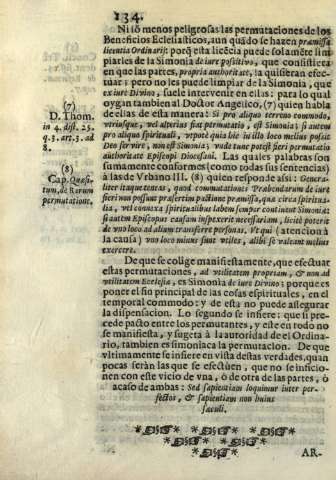 134.
Ni sõ menos peligrosas las permutaciones de los
Beneficios Eclesiasticos, aun quãdo se hazen præmissa
licentia Ordinarij: porq̃ esta licẽcia puede solamẽte lim-
piarles de la Simonia de iure positivo, que consistiera
en que las partes, propria authoritate, la quisieran efec-
tuar; pero no les puede limpiar de la Simonia, que
ex iure Divino, suele intervenir en ellas: para lo qual
oygan tambien al Doctor Angelico, (7) quien habla
de ellas de esta manera: Si pro aliquo terreno commodo,
vtriusque, vel alterius fiat permutatio, est Simonia; si autem
pro aliquo spirituali, vtpote quia hic in illo loco melius possit
Deo servire, non est Simonia; vnde tunc potest fieri permutatio
authoritate Episcopi Diocesani. Las quales palabras son
sumamente conformes (como todas sus sentencias)
à las de Vrbano III. (8) quien responde assi: Genera-
liter itaque teneas, quod commutationes Præbendarum de iure
fieri non possunt præsertim pactione præmissa, quæ circa spiritua-
lia, vel connexa spiritualibus labem semper continet Simoniæ:
si autem Episcopus causam inspexerit necessariam, licitè poterit
de vno loco ad alium transferre personas. Vt qui (atencion à
la causa) vno loco minus sunt vtiles, alibi se valeant melius
exercere.
(7)
D. Thom.
in 4. dist. 25.
q. 3. art. 3. ad
8.
(8)
Cap. Quæsi-
tum, de Rerum
permutatione.
De que se colige manifiestamente, que efectuar
estas permutaciones, ad vtilitatem propriam, & non ad
vtilitatem Ecclesiæ, es Simonia de iure Divino; porque es
poner el fin principal de las cosas espirituales, en el
temporal commodo; y de esta no puede assegurar
la dispensacion. Lo segundo se infiere: que si pre-
cede pacto entre los permutantes, y este en todo no
se manifiesta, y sugeta à la autoridad de el Ordina-
rio, tambien es simoniaca la permutacion. De que
vltimamente se infiere en vista destas verdades, quan
pocas seràn las que se efectuen, que no se inficio-
nen con este vicio de vna, ò de otra de las partes, ò
acaso de ambas: Sed sapientiam loquimur inter per-
fectos, & sapientiam non huius
sæculi.
AR-